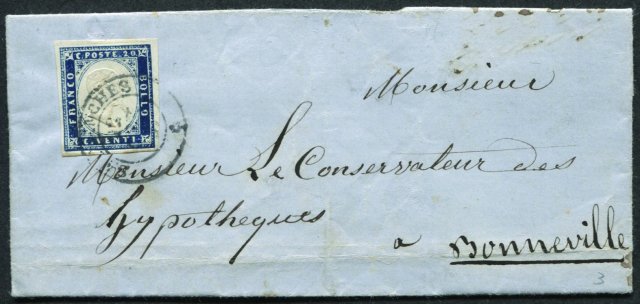 C. POSTE. 20.
FRANCO
BOLLO
C. VENTI
Monsieur
Monsieur Le Conservateur des
hypotheques
a Bonneville
3